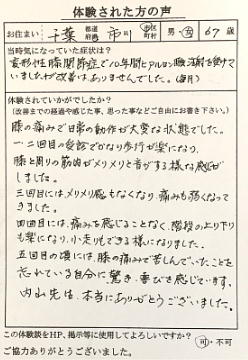 体験された方の声
お住まい 千葉 都道府県 市 市区町村 男 女 67歳
当時気になっていた症状は?
変形性膝関節症で10年間ヒアルロン酸注射を受けて
いましたが改善はありませんでした。
体験されていかがでしたか?
(改善までの経過や感じた事、思った事などご自由にお書き下さい。)
膝の痛みで日常の動作が大変な状態でした。
一、二回目の受診でかなり歩行が楽になり、
膝と周りの筋肉がメリメリと音がする様な感じが
しました。
三回目には、メリメリ感もなくなり、痛みも弱くなって
きました。
四回目には、痛みを感じることなく、階段の上り下り
も楽になり、小走りもできる様になりました。
五回目の頃には、膝の痛みで苦しんでいたことを
忘れている自分に驚き、喜びを感じています。
内山先生、本当にありがとうございました。
この体験談をHP、掲示等に使用してよろしいですか?
ご協力ありがとうございました。 可・不可